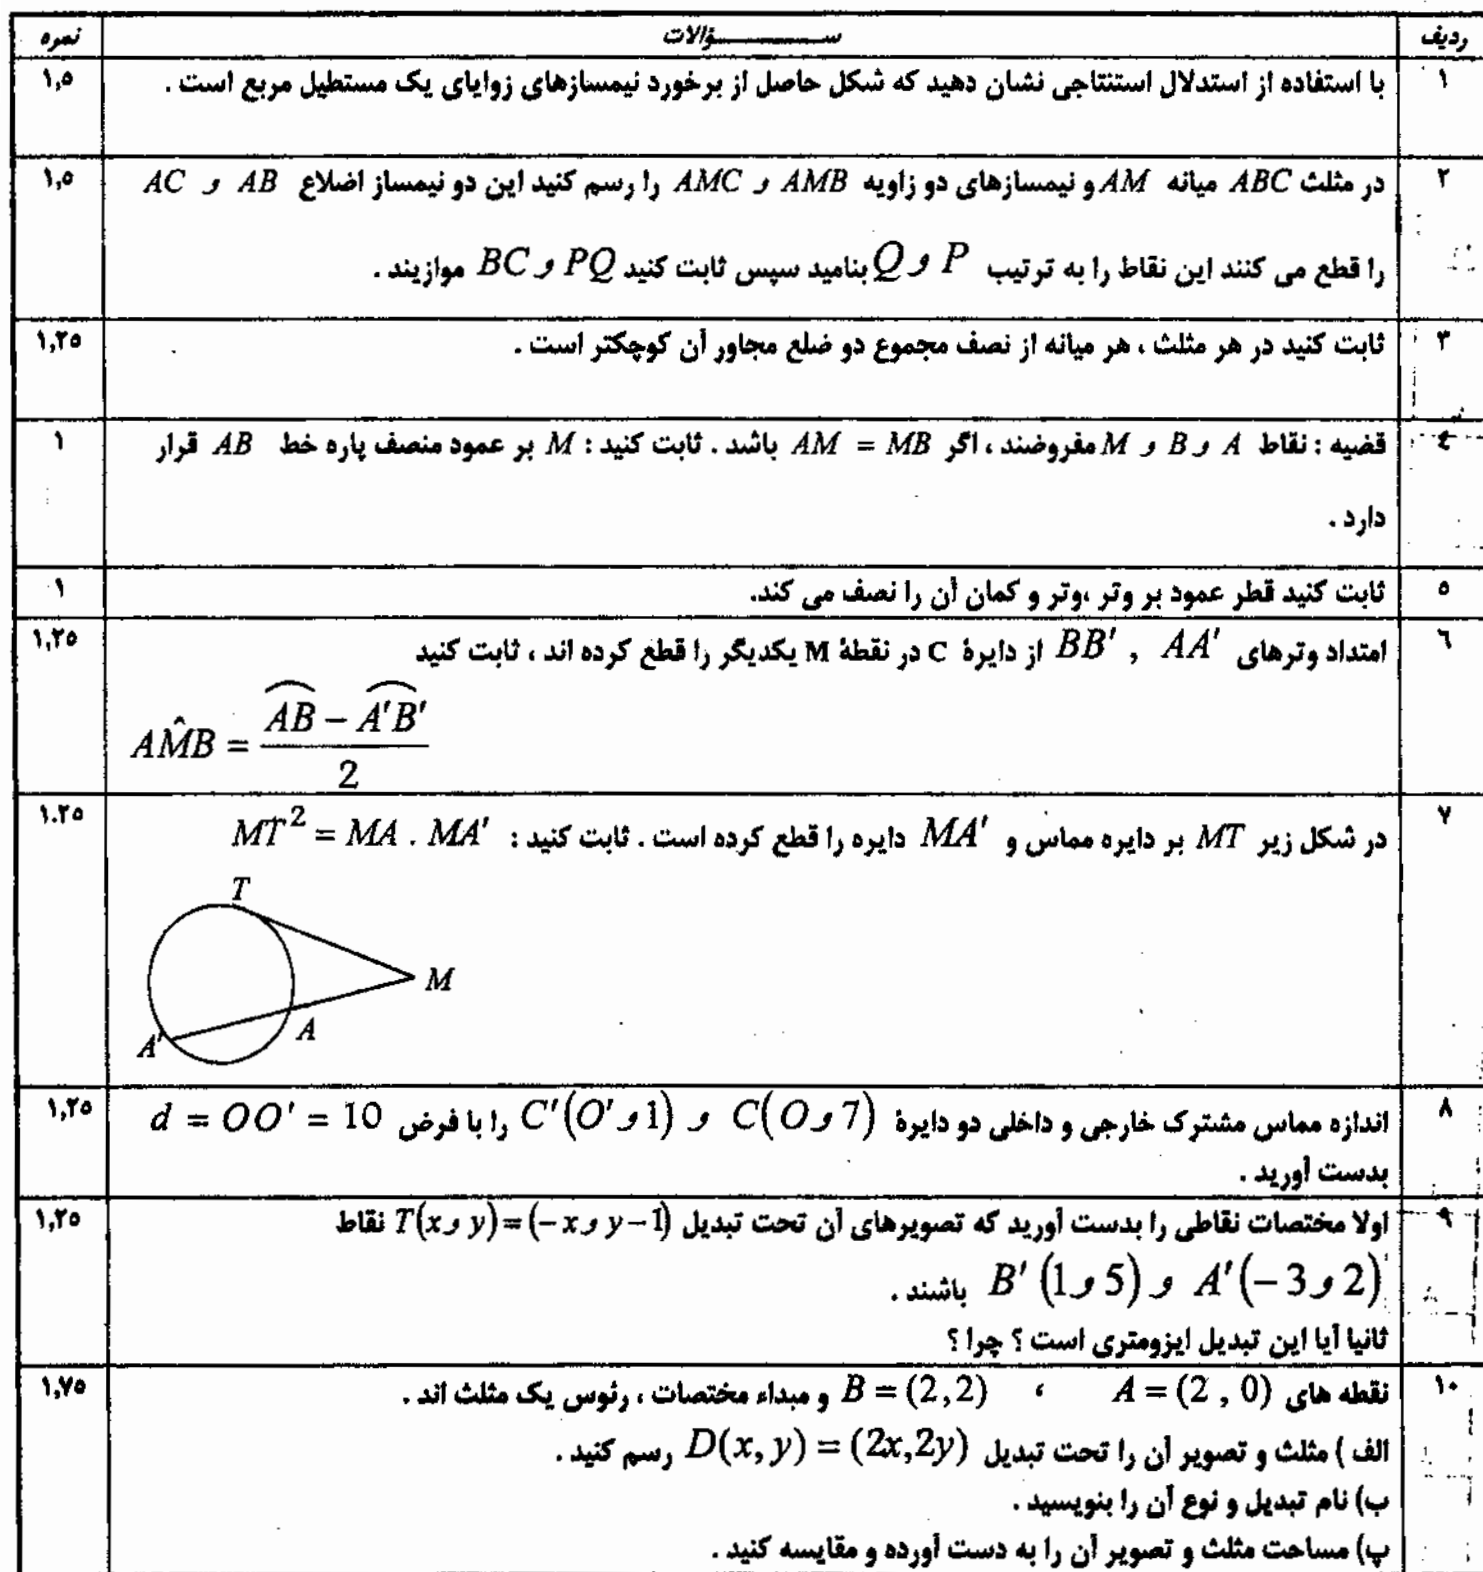 ردیف ســـــؤالات نمره
۱ با استفاده از استدلال استنتاجی نشان دهید که شکل حاصل از برخورد نیمسازهای زوایای یک مستطیل مربع است . ۱,۵
۲ در مثلث ABC میانه AM و نیمسازهای دو زاویه AMB و AMC را رسم کنید این دو نیمساز اضلاع AB و AC ۱,۵
را قطع می کنند این نقاط را به ترتیب P و Q بنامید سپس ثابت کنید PQ و BC موازیند .
۳ ثابت کنید در هر مثلث ، هر میانه از نصف مجموع دو ضلع مجاور آن کوچکتر است . ۱,۲۵
٤ قضیه : نقاط A و B و M مفروضند ، اگر AM = MB باشد . ثابت کنید : M بر عمود منصف پاره خط AB قرار ۱
دارد .
۵ ثابت کنید قطر عمود بر وتر ،وتر و کمان آن را نصف می کند. ۱
٦ امتداد وترهای AA' , BB' از دایرهٔ C در نقطهٔ M یکدیگر را قطع کرده اند ، ثابت کنید ۱,۲۵
AM̂B = (A͡B − A͡'B') / 2
۷ در شکل زیر MT بر دایره مماس و MA' دایره را قطع کرده است . ثابت کنید : MT² = MA . MA' ۱.۲۵
T
M
A
A'
۸ اندازه مماس مشترک خارجی و داخلی دو دایرهٔ C(O و 7) و C'(O' و 1) را با فرض d = OO' = 10 ۱,۲۵
بدست آورید .
۹ اولا مختصات نقاطی را بدست آورید که تصویرهای آن تحت تبدیل T(x و y) = (−x و y−1) نقاط ۱,۲۵
A'(−3 و 2) و B'(1 و 5) باشند .
ثانیا آیا این تبدیل ایزومتری است ؟ چرا ؟
۱۰ نقطه های A = (2 , 0) ، B = (2,2) و مبداء مختصات ، رئوس یک مثلث اند . ۱,۷۵
الف ) مثلث و تصویر آن را تحت تبدیل D(x, y) = (2x,2y) رسم کنید .
ب) نام تبدیل و نوع آن را بنویسید .
پ) مساحت مثلث و تصویر آن را به دست آورده و مقایسه کنید .